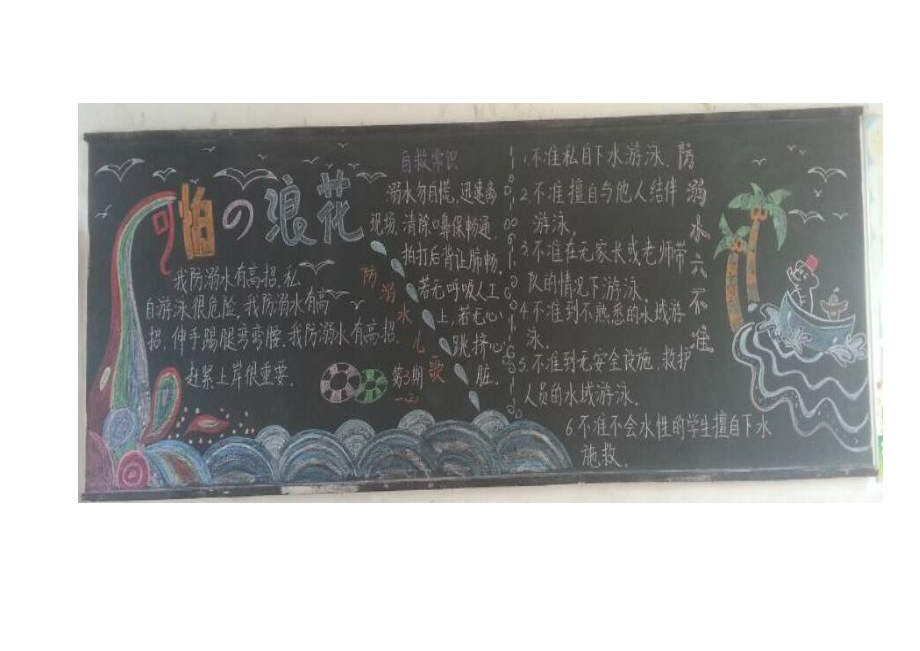 可怕の浪花
我防溺水有高招,私
自游泳很危险,我防溺水有高
招,伸手踢腿弯弯腰,我防溺水有高招,
赶紧上岸很重要.
防溺水儿歌
第3期
自救常识
溺水勿自慌,迅速离
现场,清除口鼻保畅通,
拍打后背让肺畅,
若无呼吸人工
上,若无心
跳挤心
脏.
防溺水六不准
1.不准私自下水游泳、
2不准擅自与他人结伴
游泳.
3.不准在无家长或老师带
队的情况下游泳.
4不准到不熟悉的水域游
泳.
5.不准到无安全设施、救护
人员的水域游泳.
6.不准不会水性的学生擅自下水
施救.